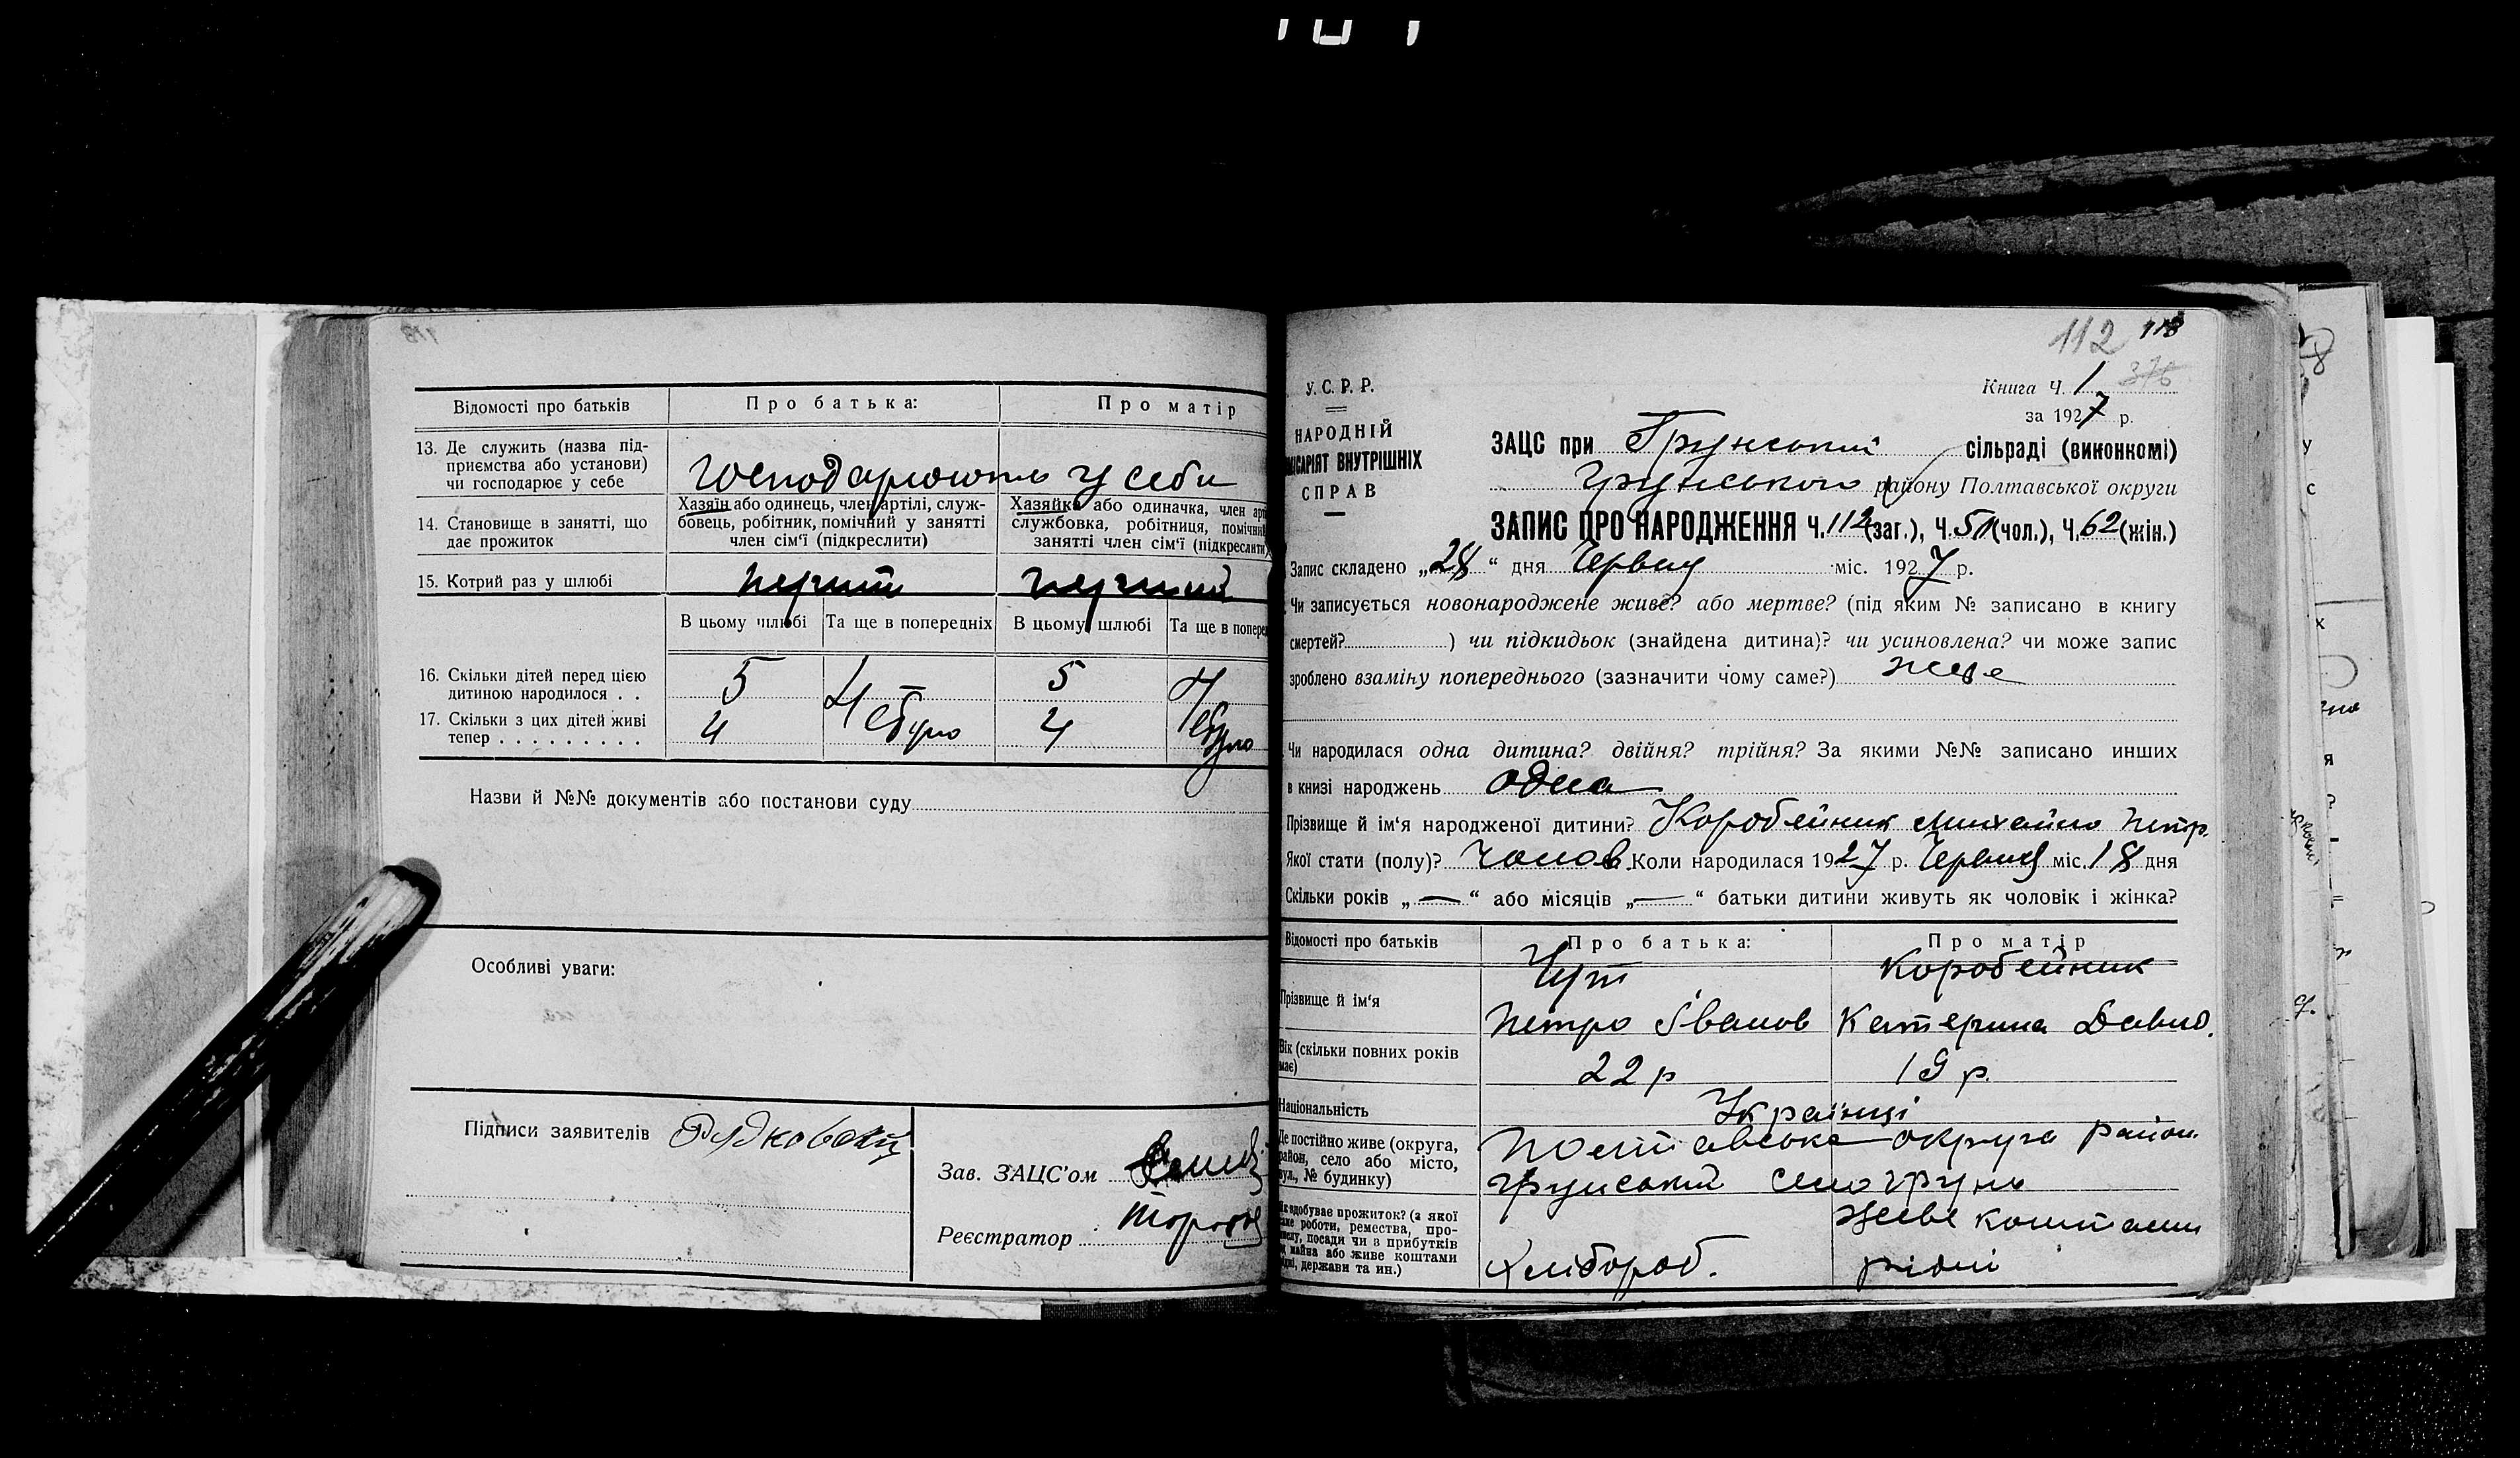 Відомості про батьків
Про батька:
Про матір
13. Де служить (назва під-
приємства або установи)
чи господарює у себе
Господарюють у себе
14. Становище в занятті, що
дає прожиток
Хазяїн або одинець, член артілі, служ-
бовець, робітник, помічний у занятті
член сім'ї (підкреслити)
Хазяйка або одиначка, член арт
службовка, робітниця, помічни
занятті член сім'ї (підкреслити)
15. Котрий раз у шлюбі
перший
перший
В цьому шлюбі
Та ще в попередніх
В цьому шлюбі
Та ще в попере
16. Скільки дітей перед цією
дитиною народилося . .
5
5
17. Скільки з цих дітей живі
тепер . . . . . . . . .
4
Не було
4
Не було
Назви й №№ документів або постанови суду
Особливі уваги:
Підписи заявителів
Зав. ЗАЦС'ом
Реєстратор
112 113
376
У. С. Р. Р.
НАРОДНІЙ
МІСАРІЯТ ВНУТРІШНІХ
СПРАВ
Книга Ч. 1
за 1927 р.
ЗАЦС при Грунський сільраді (виконкомі)
Грунського району Полтавської округи
ЗАПИС ПРО НАРОДЖЕННЯ Ч. 112 (заг.), Ч. 51 (чол.), Ч. 62 (жін.)
Запис складено „28“ дня Червня міс. 1927 р.
Чи записується новонароджене живе? або мертве? (під яким № записано в книгу
смертей? ) чи підкидьок (знайдена дитина)? чи усиновлена? чи може запис
зроблено взаміну попереднього (зазначити чому саме?) живе
Чи народилася одна дитина? двійня? трійня? За якими №№ записано инших
в книзі народжень одна
Прізвище й ім'я народженої дитини? Коробейник Михайло Петр.
Якої стати (полу)? Чолов. Коли народилася 1927 р. Червня міс. 18 дня
Скільки років „—“ або місяців „—“ батьки дитини живуть як чоловік і жінка?
Відомості про батьків
Про батька:
Про матір
Прізвище й ім'я
Коробейник
Петро Іванов
Катерина Давид.
Вік (скільки повних років
має)
22 р
19 р.
Національність
Українці
Де постійно живе (округа,
район, село або місто,
вул., № будинку)
Полтавська округа район
Грунський село Грунь
Як здобуває прожиток? (з якої
саме роботи, ремества, про-
мислу, посади чи з прибутків
од майна або живе коштами
рідні, держави та ин.)
Хлібороб.
Живе коштами
рідні